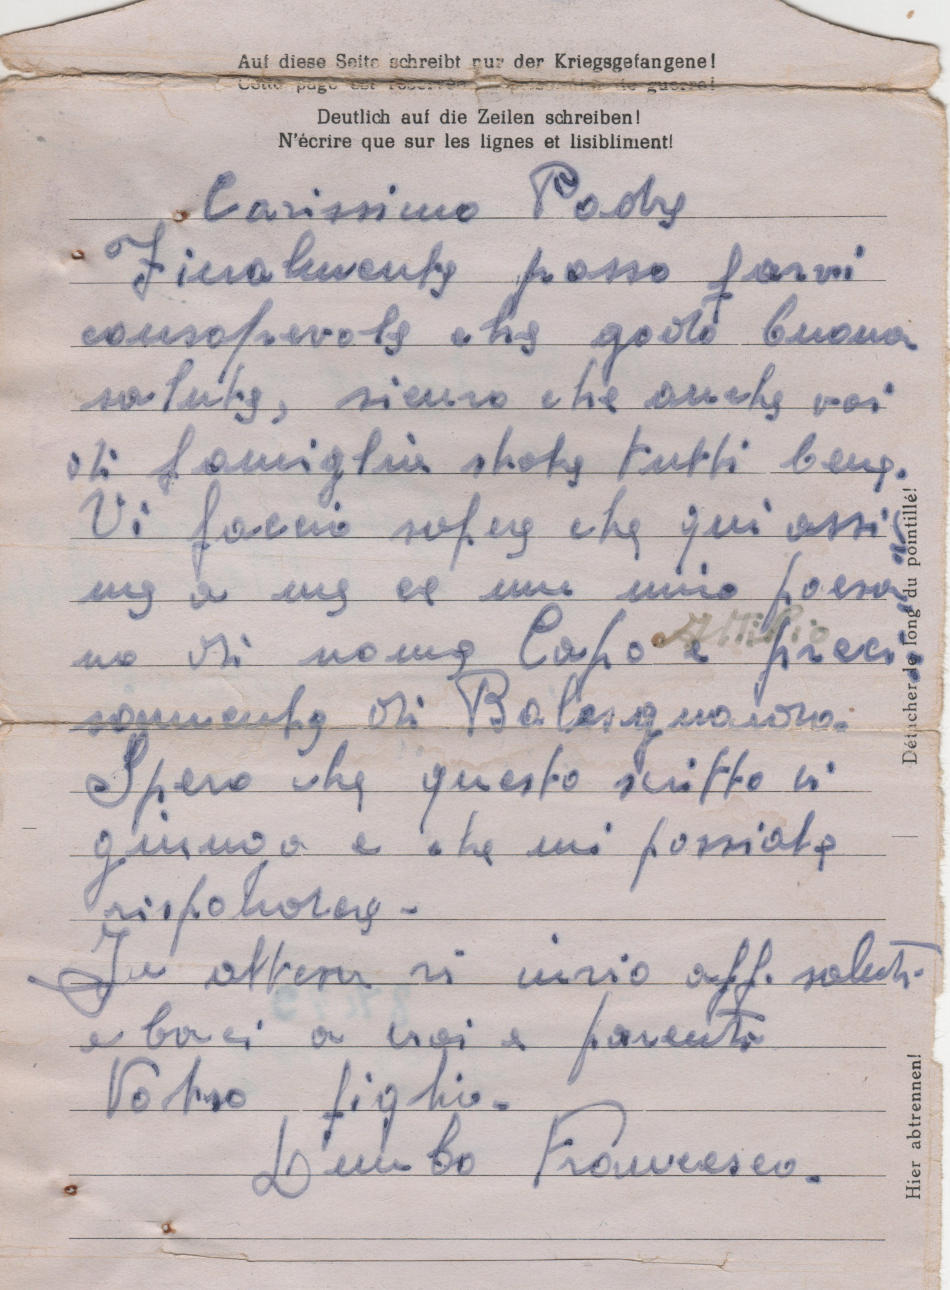 Auf diese Seite schreibt nur der Kriegsgefangene!
Cette page est réservée de guerre!
Deutlich auf die Zeilen schreiben!
N'écrire que sur les lignes et lisibliment!
Carissimo Padre
Finalmente posso farvi
consapevole che godo buona
salute, sicuro che anche voi
di famiglia state tutti bene.
Vi faccio sapere che qui assi
me a me ce un mio paesa
no di nome Capo Attilio e preci
samente di Balesgnana.
Spero che questo scritto vi
giunga e che mi possiate
rispondere -
In attesa vi invio aff. saluti
e baci a voi e parenti
Vostro figlio.
Francesco.
Détacher le long du pointillé!
Hier abtrennen!